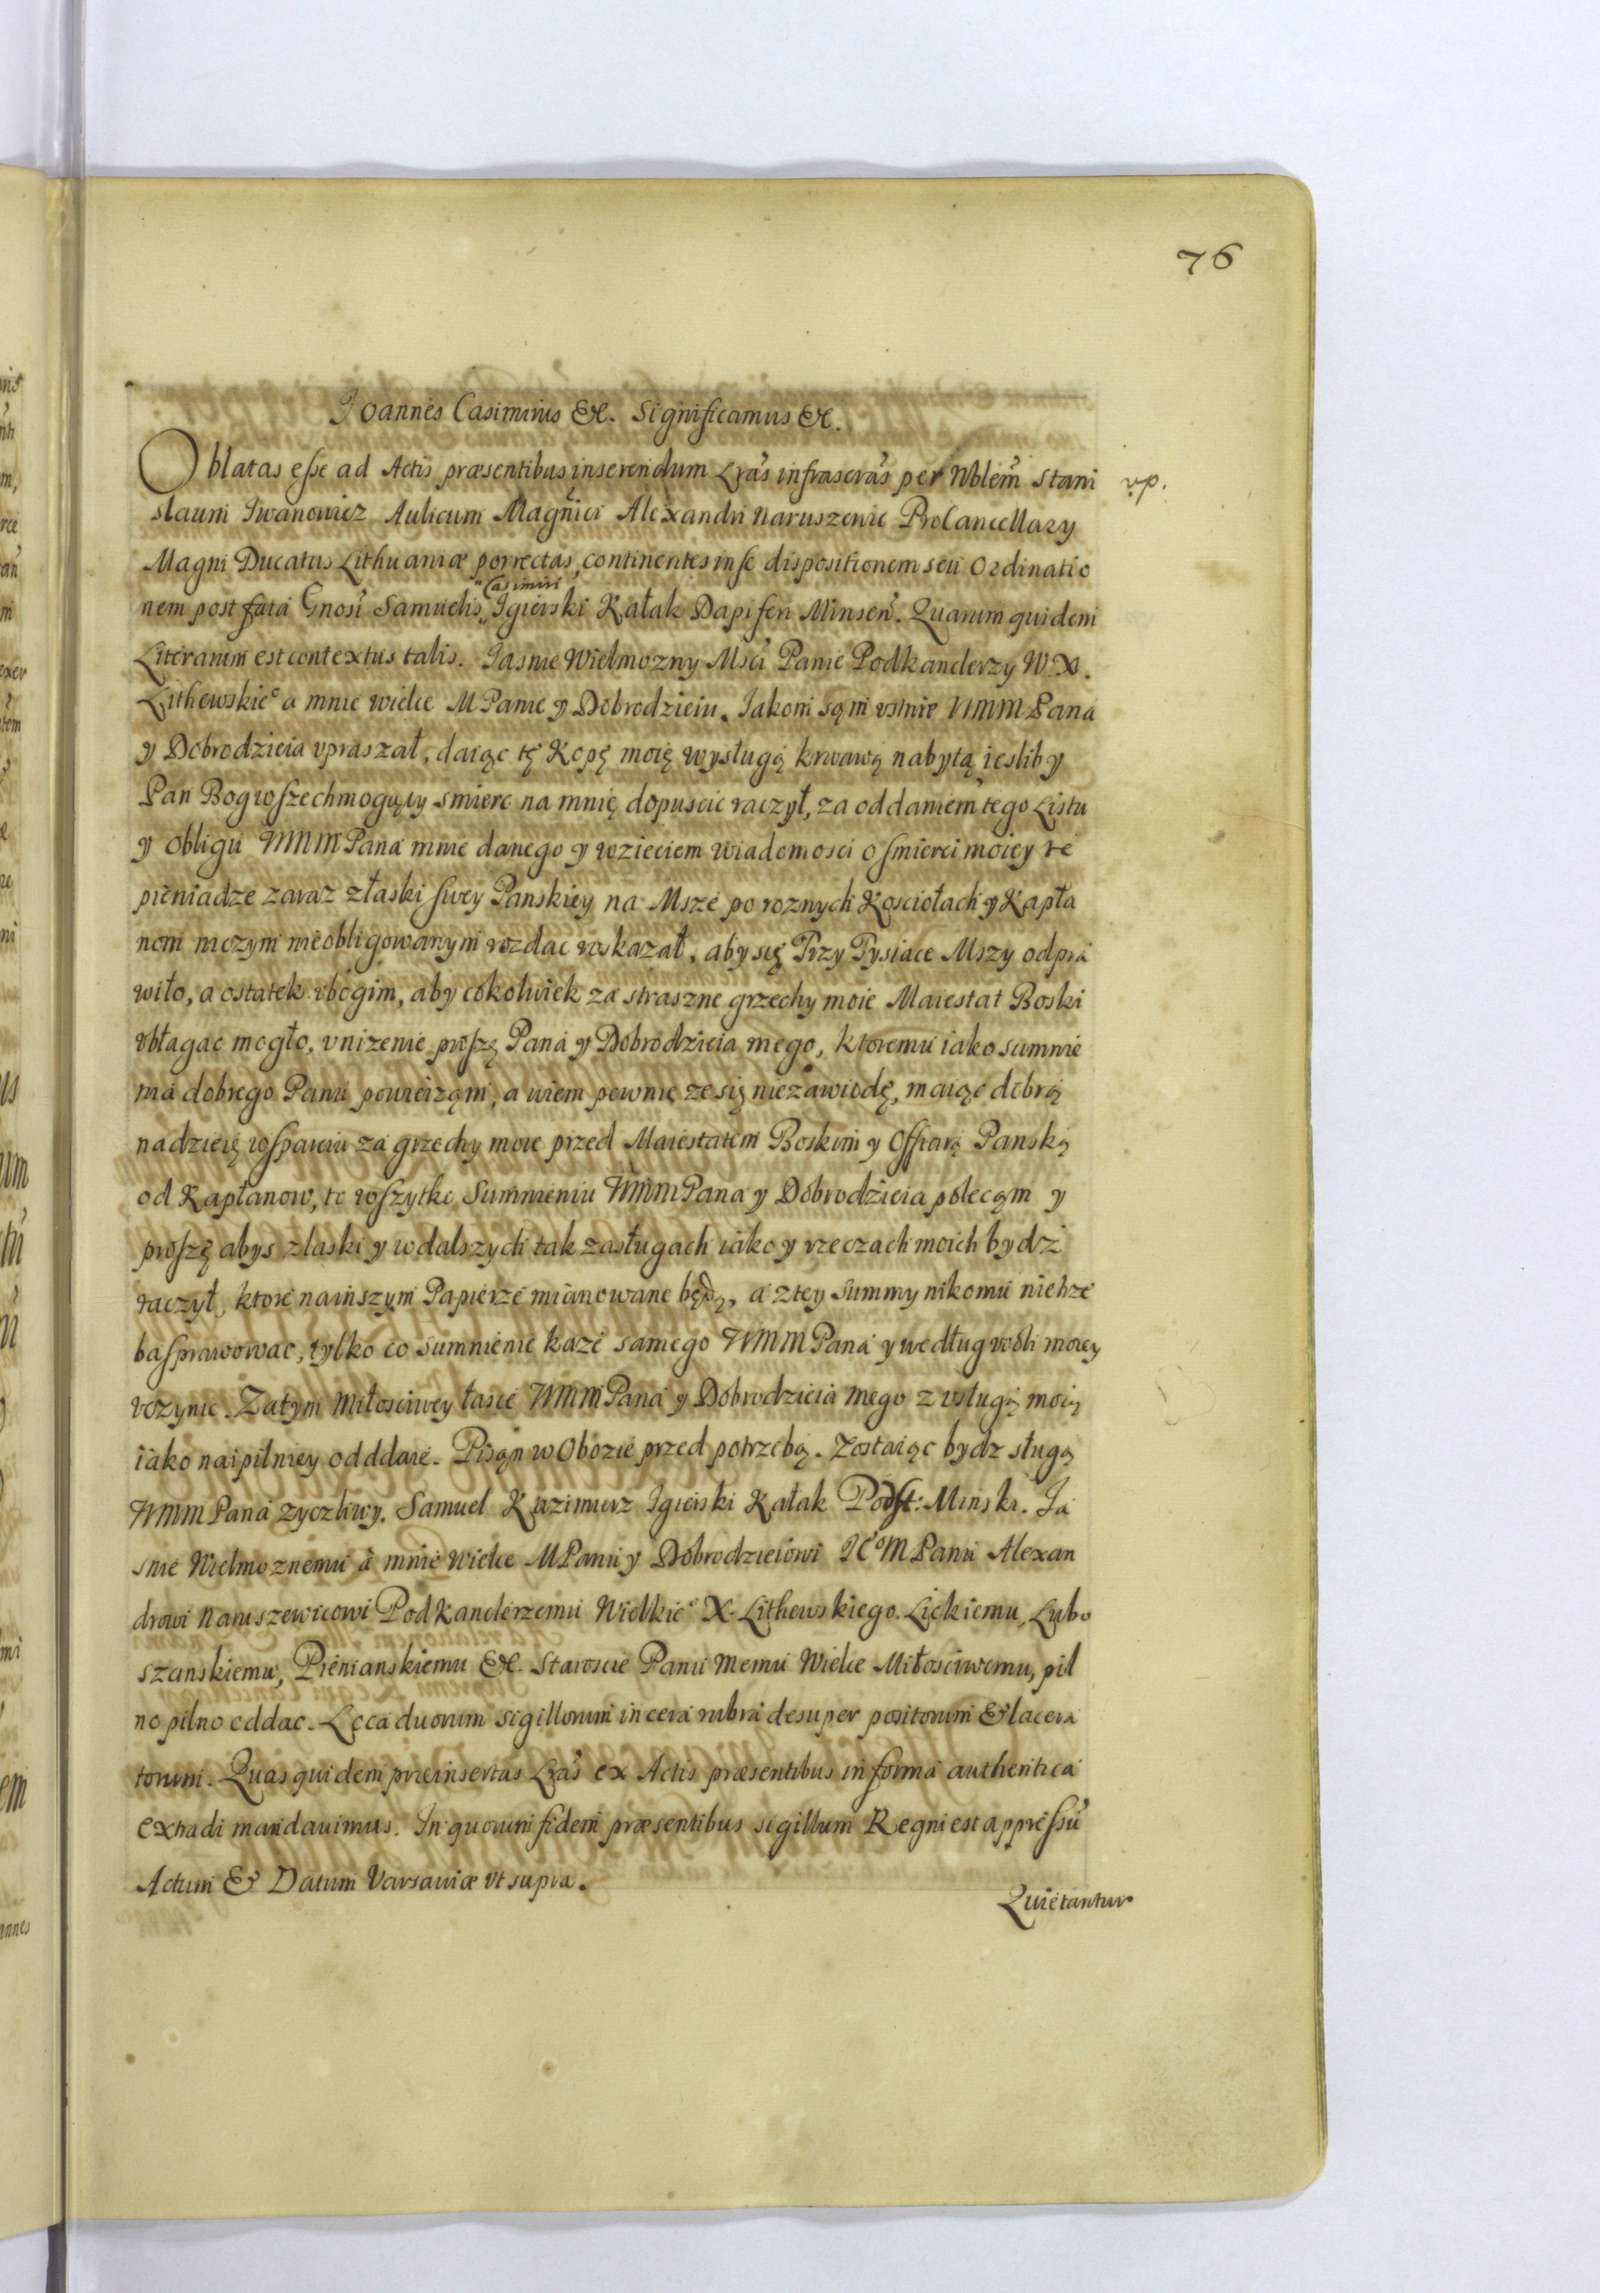 76
Joannes Casimirus &c. Significamus &c.
Oblatas esse ad Actis præsentibus inserendum Lrãs infrascrãs per Nblem̃ Stani
slaum Iwanowicz Aulicum Magnici Alexandri Naruszewic ProCancellary
v.p.
Magni Ducatus Lithuaniæ porrectas, continentes in se dispositionem seu Ordinatio
Casimiri
nem post fata Gnosi Samuelis Igierski Kałak Dapiferi Minseñ. Quarum quidem
Literarum est contextus talis. Jasnie Wielmozny Msći Panie Podkanclerzy W.X.
Lithewskiᵉ a mnie wielce MPanie y Dobrodzieiu. Jakom sąm vstnie WMMPana
y Dobrodzieia vpraszał, daiąc tę Kopę moię wysługą krwawą nabytą iesliby
Pan Bog wszechmogący smierc na mnię dopuscic raczył, za oddaniem tego Listu
y Obligu WMMPana mnie danego y wzieciem wiadomosci o smierci moiey te
pieniadze zaraz złaski swey Panskiey na Msze po roznych Kosciołach y Kapła
nom niczym nieobligowanym rozdac roskazał, aby się Trzy Tysiace Mszy odpra
wiło, a ostatek vbogim, aby cokolwiek za straszne grzechy moie Maiestat Boski
vbłagac mogło, vnizenie proszę Pana y Dobrodzieia mego, ktoremu iako sumnie
nia dobrego Panu powierząm, a wiem pewnie ze się niezawiodę, maiąc dobrą
nadzieię wsparciu za grzechy moie przed Maiestatem Boskim y Offiarą Panską
od Kapłanow, to wszytko Sumnieniu WMMPana y Dobrodzieia polecąm y
proszę abys złaski y wdalszych tak zasługach iako y rzeczach moich bydz
raczył, ktore nainszym Papierze mianowane będą, a ztey Summy nikomu nietrze
basprawowac, tylko co sumnienie kaze samego WMMPana y według woli moiey
vczynic. Zatym Miłosciwey łasce WMMPana y Dobrodzieia mego z vsługą moią
iako naipilniey odddaie. Pisąn w Obozie przed potrzebą. Zostaiąc bydz sługą
WMMPana zyczliwy. Samuel Kazimierz Igierski Kałak Podst: Minski. Ja
snie Wielmoznemu à mnie wielce MPanu y Dobrodzieiowi JᵉᵒMPanu Alexan
drowi Naruszewicowi PodKanclerzemu Wielkiᵉ X. Lithewskiego. Lickiemu, Lubo
szanskiemu, Pienianskiemu &c. Staroscie Panu memu Wielce Miłosciwemu, pil
no pilno oddac. Loca duorum sigillorum in cera rubra desuper positorum & lacera
torum. Quas quidem præinsertas Lrãs ex Actis præsentibus in forma authentica
extradi mandauimus. In quorum fidem præsentibus sigillum Regni est appressũ
Actum & Datum Varsaviæ vt supra.
Quietantur